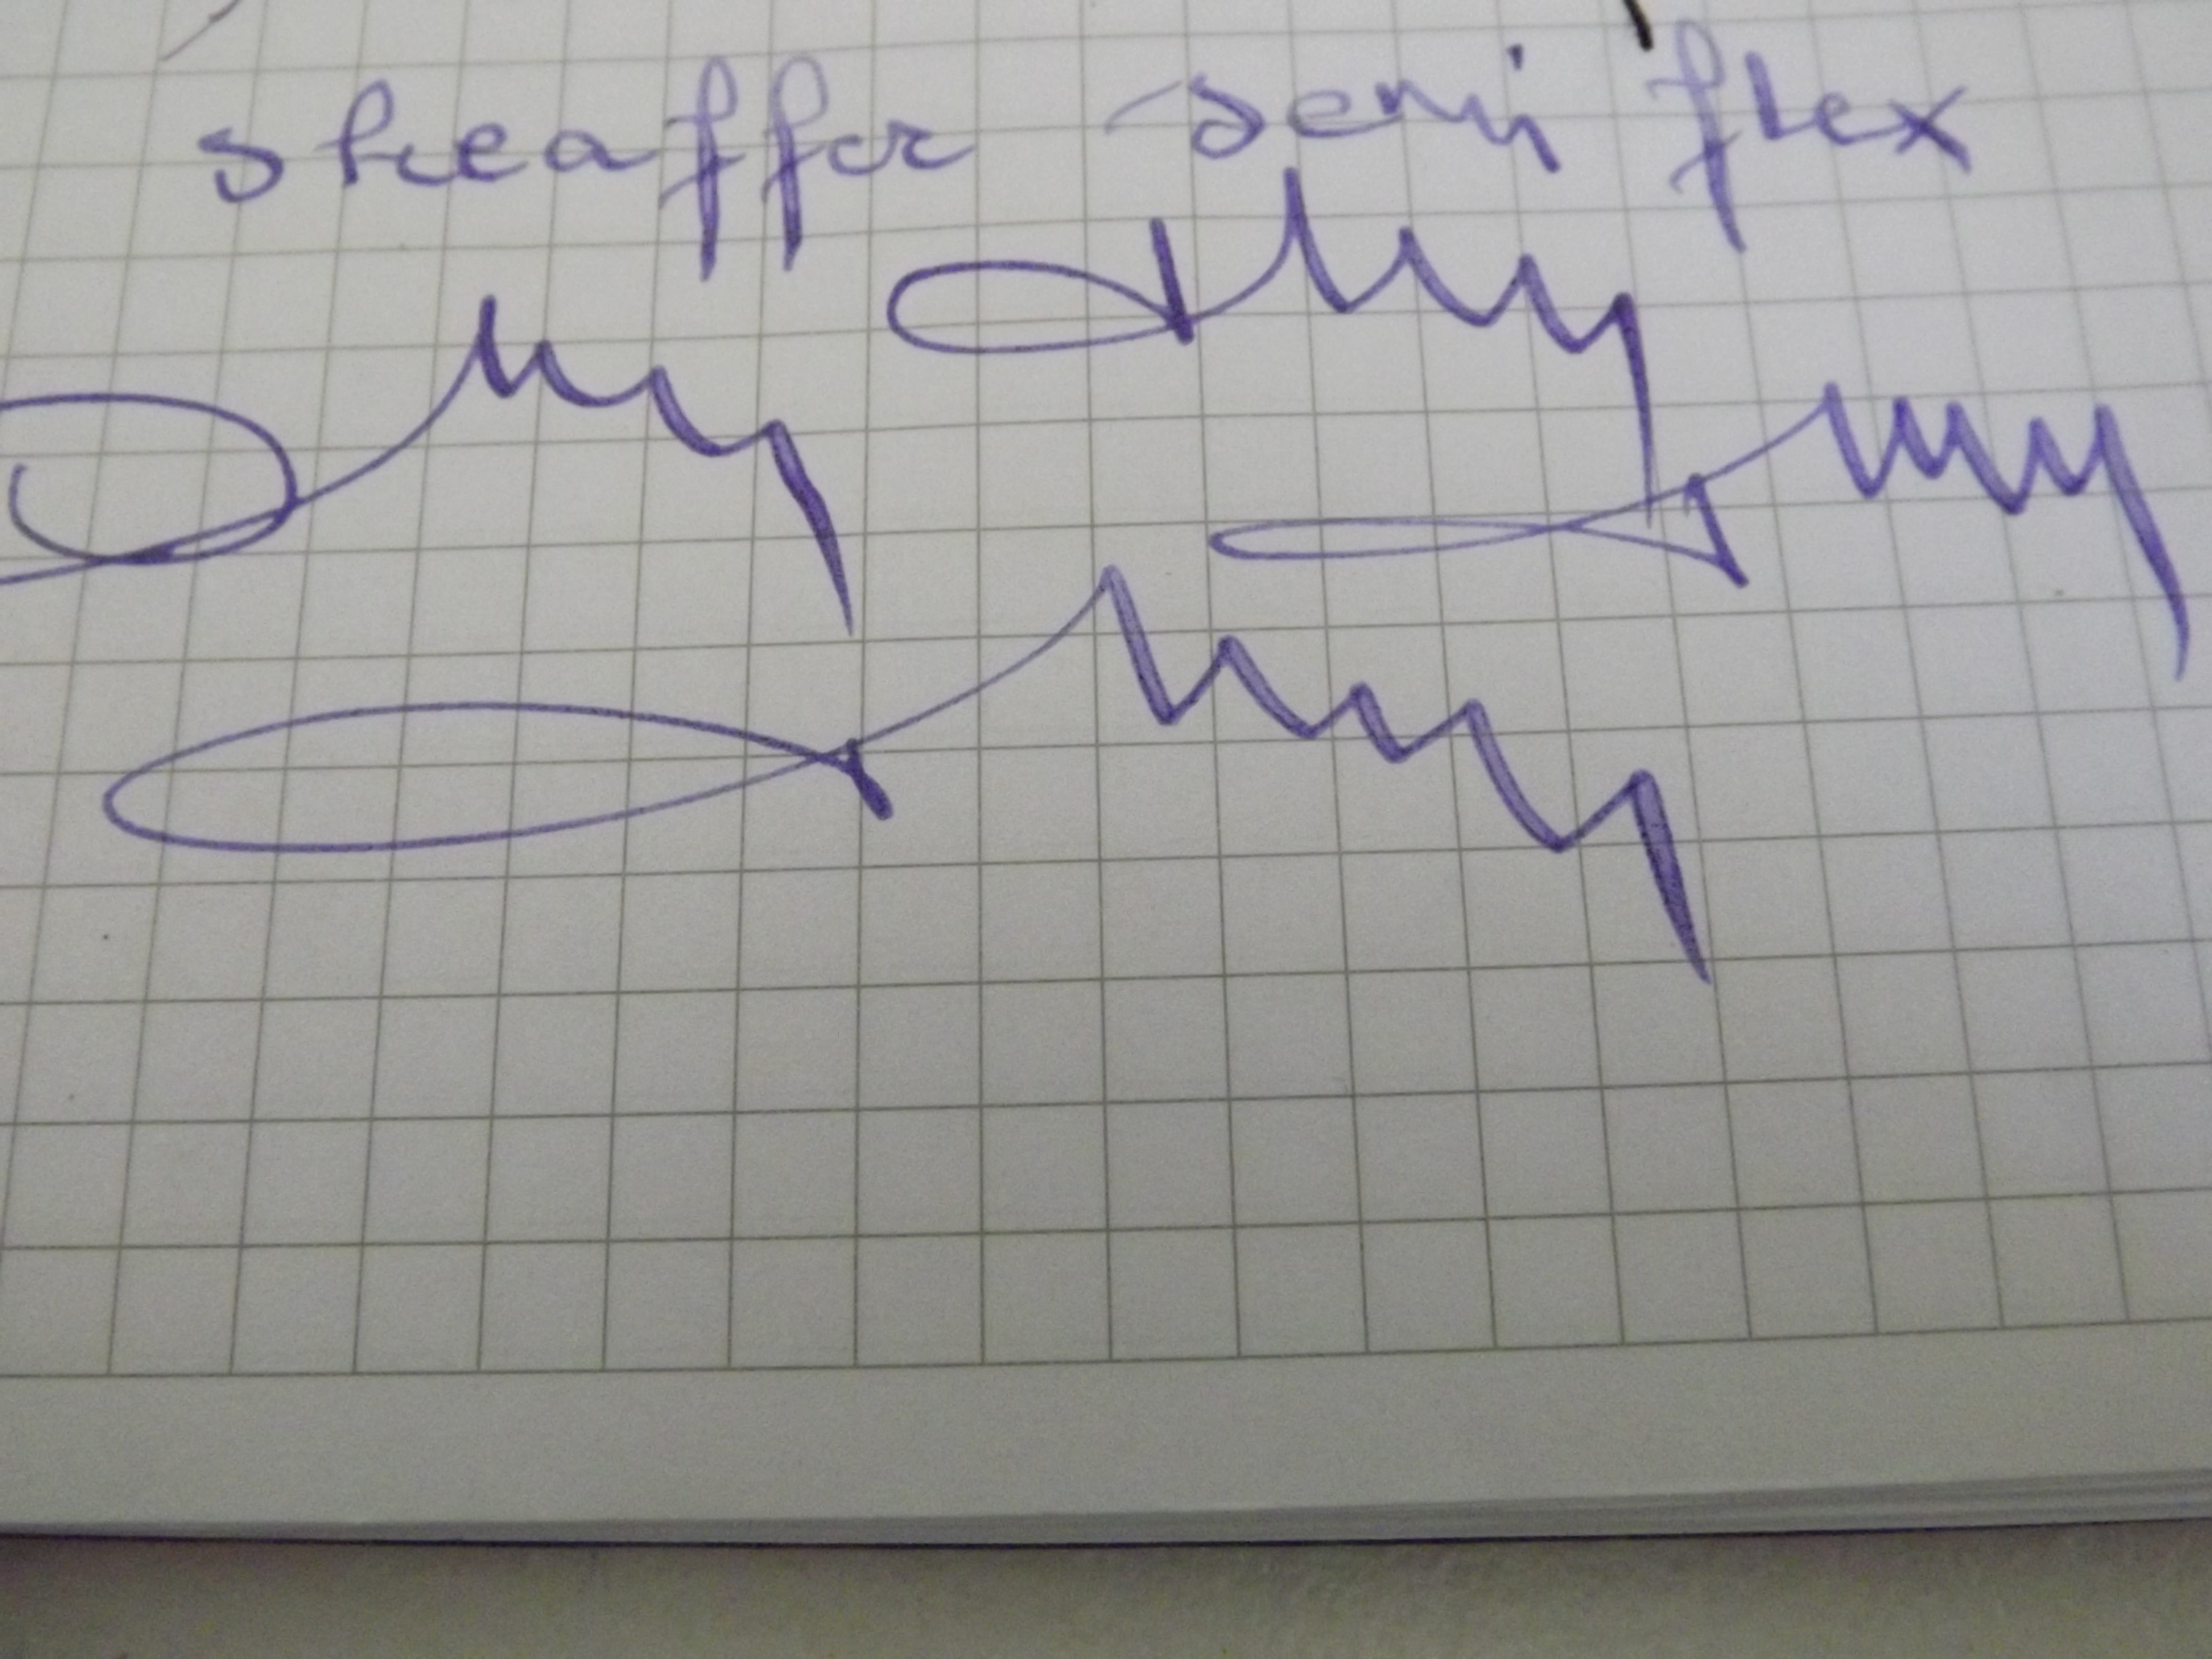 sheaffer semi flex